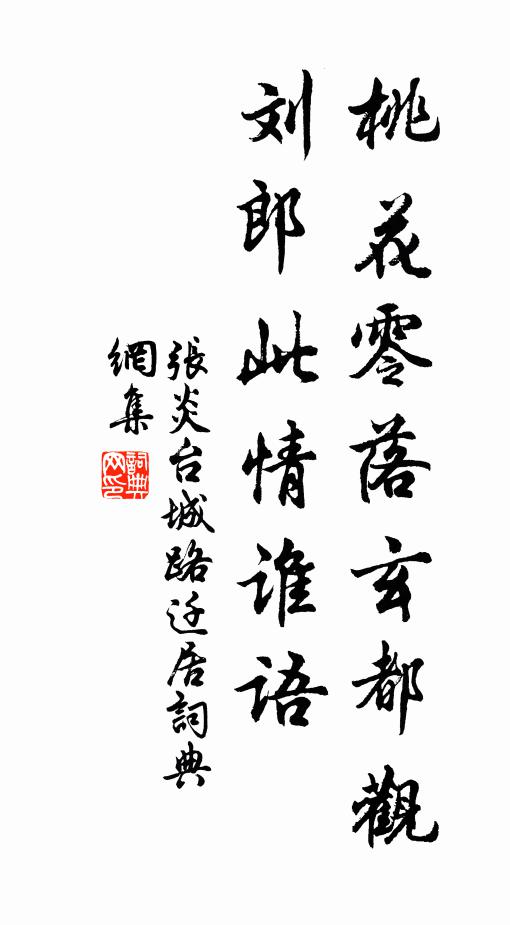 桃花零落玄都觀
刘郎此情谁语
張炎台城路迁居詞典
網集
詞典
网印